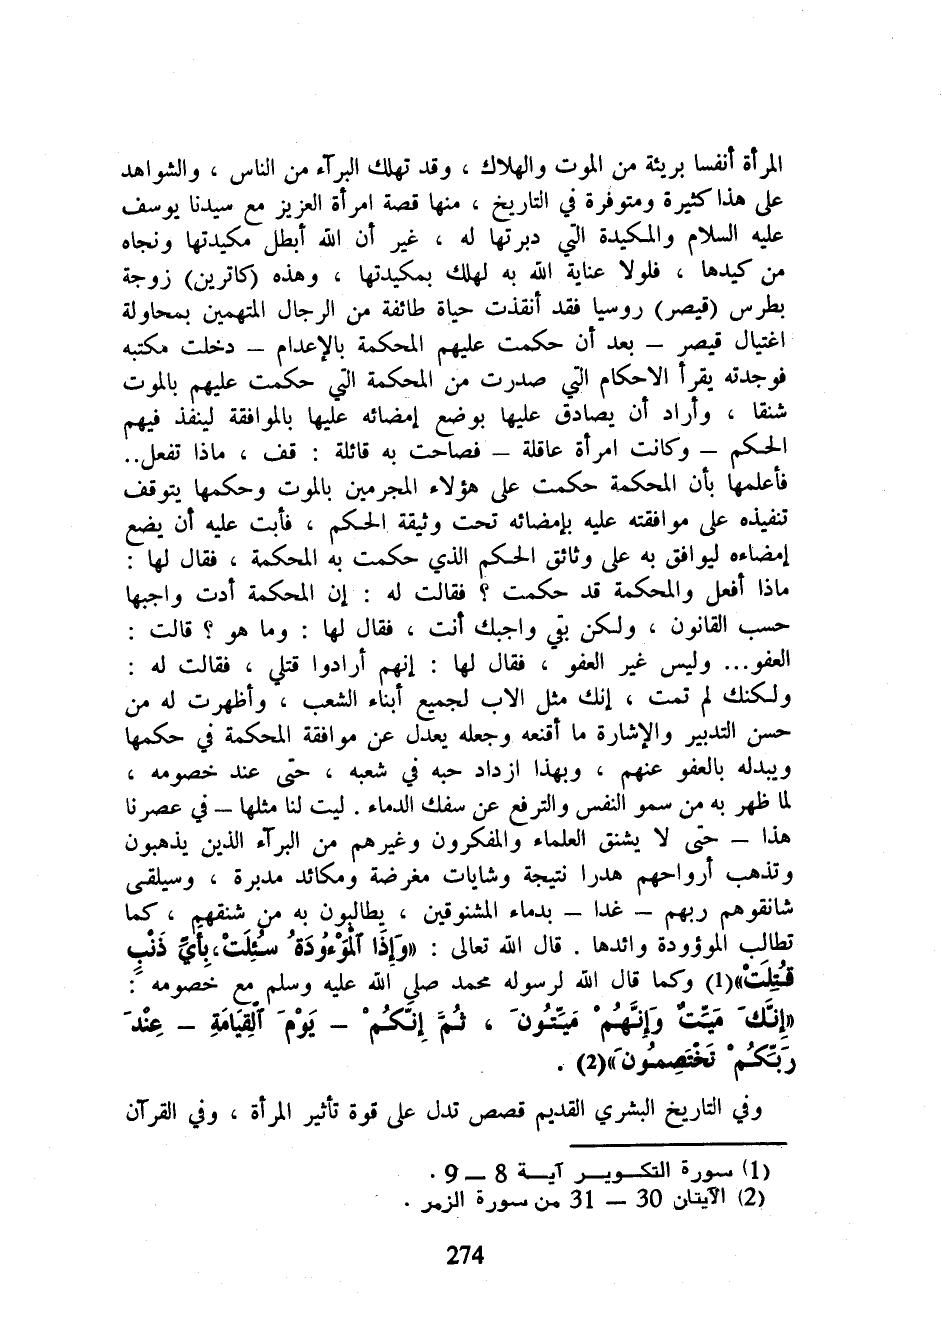 المرأة أنفسا بريئة من الموت والهلاك ، وقد تهلك البرآء من الناس ، والشواهد
على هذا كثيرة ومتوفرة في التاريخ ، منها قصة امرأة العزيز مع سيدنا يوسف
عليه السلام والمكيدة التي دبرتها له ، غير أن الله أبطل مكيدتها ونجاه
من كيدها ، فلولا عناية الله به لهلك بمكيدتها ، وهذه (كاترين) زوجة
بطرس (قيصر) روسيا فقد أنقذت حياة طائفة من الرجال المتهمين بمحاولة
اغتيال قيصر – بعد أن حكمت عليهم المحكمة بالإعدام – دخلت مكتبه
فوجدته يقرأ الاحكام التي صدرت من المحكمة التي حكمت عليهم بالموت
شنقا ، وأراد أن يصادق عليها بوضع إمضائه عليها بالموافقة لينفذ فيهم
الحكم – وكانت امرأة عاقلة – فصاحت به قائلة : قف ، ماذا تفعل..
فأعلمها بأن المحكمة حكمت على هؤلاء المجرمين بالموت وحكمها يتوقف
تنفيذه على موافقته عليه بإمضائه تحت وثيقة الحكم ، فأبت عليه أن يضع
إمضاءه ليوافق به على وثائق الحكم الذي حكمت به المحكمة ، فقال لها :
ماذا أفعل والمحكمة قد حكمت ؟ فقالت له : إن المحكمة أدت واجبها
حسب القانون ، ولكن بقي واجبك أنت ، فقال لها : وما هو ؟ قالت :
العفو... وليس غير العفو ، فقال لها : إنهم أرادوا قتلي ، فقالت له :
ولكنك لم تمت ، إنك مثل الاب لجميع أبناء الشعب ، وأظهرت له من
حسن التدبير والإشارة ما أقنعه وجعله يعدل عن موافقة المحكمة في حكمها
ويبدله بالعفو عنهم ، وبهذا ازداد حبه في شعبه ، حتى عند خصومه ،
لما ظهر به من سمو النفس والترفع عن سفك الدماء . ليت لنا مثلها – في عصرنا
هذا – حتى لا يشنق العلماء والمفكرون وغيرهم من البرآء الذين يذهبون
وتذهب أرواحهم هدرا نتيجة وشايات مغرضة ومكائد مدبرة ، وسيلقى
شانقوهم ربهم – غدا – بدماء المشنوقين ، يطالبون به من شنقهم ، كما
تطالب الموؤودة وائدها . قال الله تعالى : «وَإِذَا ٱلْمَوْءُودَةُ سُئِلَتْ، بِأَيِّ ذَنْبٍ
قُتِلَتْ»(1) وكما قال الله لرسوله محمد صلى الله عليه وسلم مع خصومه :
«إِنَّكَ مَيِّتٌ وَإِنَّهُمْ مَيِّتُونَ ، ثُمَّ إِنَّكُمْ – يَوْمَ ٱلْقِيَامَةِ – عِنْدَ
رَبِّكُمْ تَخْتَصِمُونَ»(2) .
وفي التاريخ البشري القديم قصص تدل على قوة تأثير المرأة ، وفي القرآن
(1) سورة التكويـر آيـة 8 – 9 .
(2) الآيتان 30 – 31 من سورة الزمر .
274